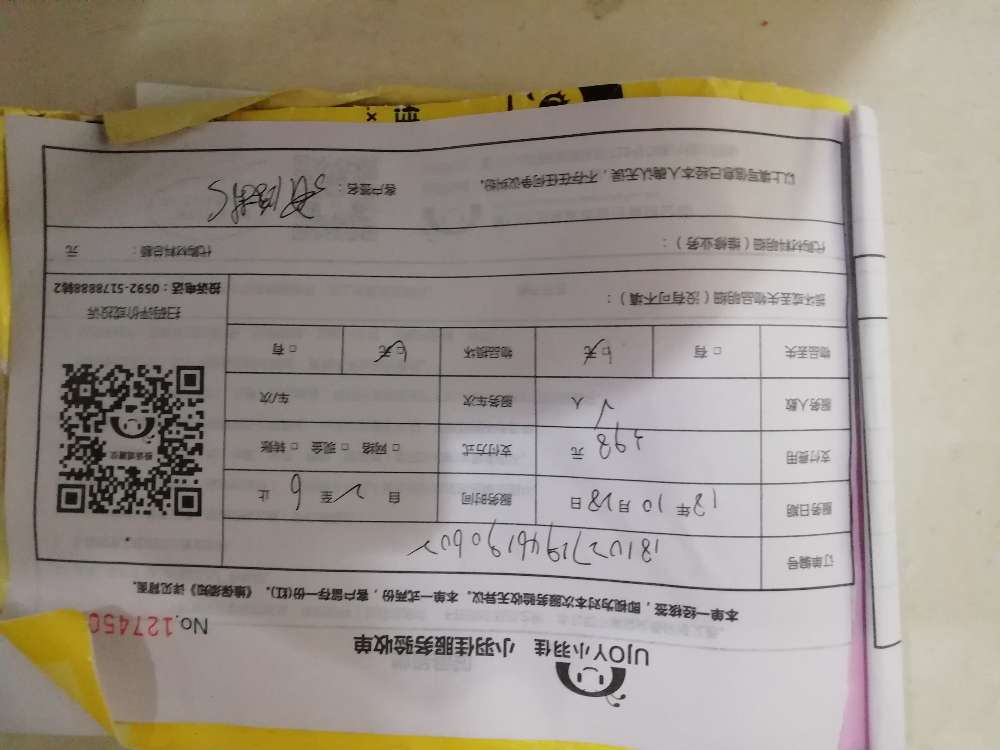 UJOY小羽佳 小羽佳服务验收单
No.127450
本单一经核签，即视为对本次服务验收无异议。本单一式两份，客户留存一份(红)。《维保须知》详见背面。
订单编号 181027194619060
服务日期 18年10月28日 服务时间 自 2 至 6 止
支付费用 398 元 支付方式 □ 网络 □ 现金 □ 转账
服务人数 人 服务车次 车/次
物品丢失 □ 有 □ 无 物品损坏 □ 无 □ 有
损坏或丢失物品明细（没有可不填）：
扫码评价或投诉
投诉电话：0592-5178888转2
代购材料明细（维修业务）： 代购材料总额： 元
以上填写信息已经本人确认无误，不存在任何争议纠纷。 客户签名：